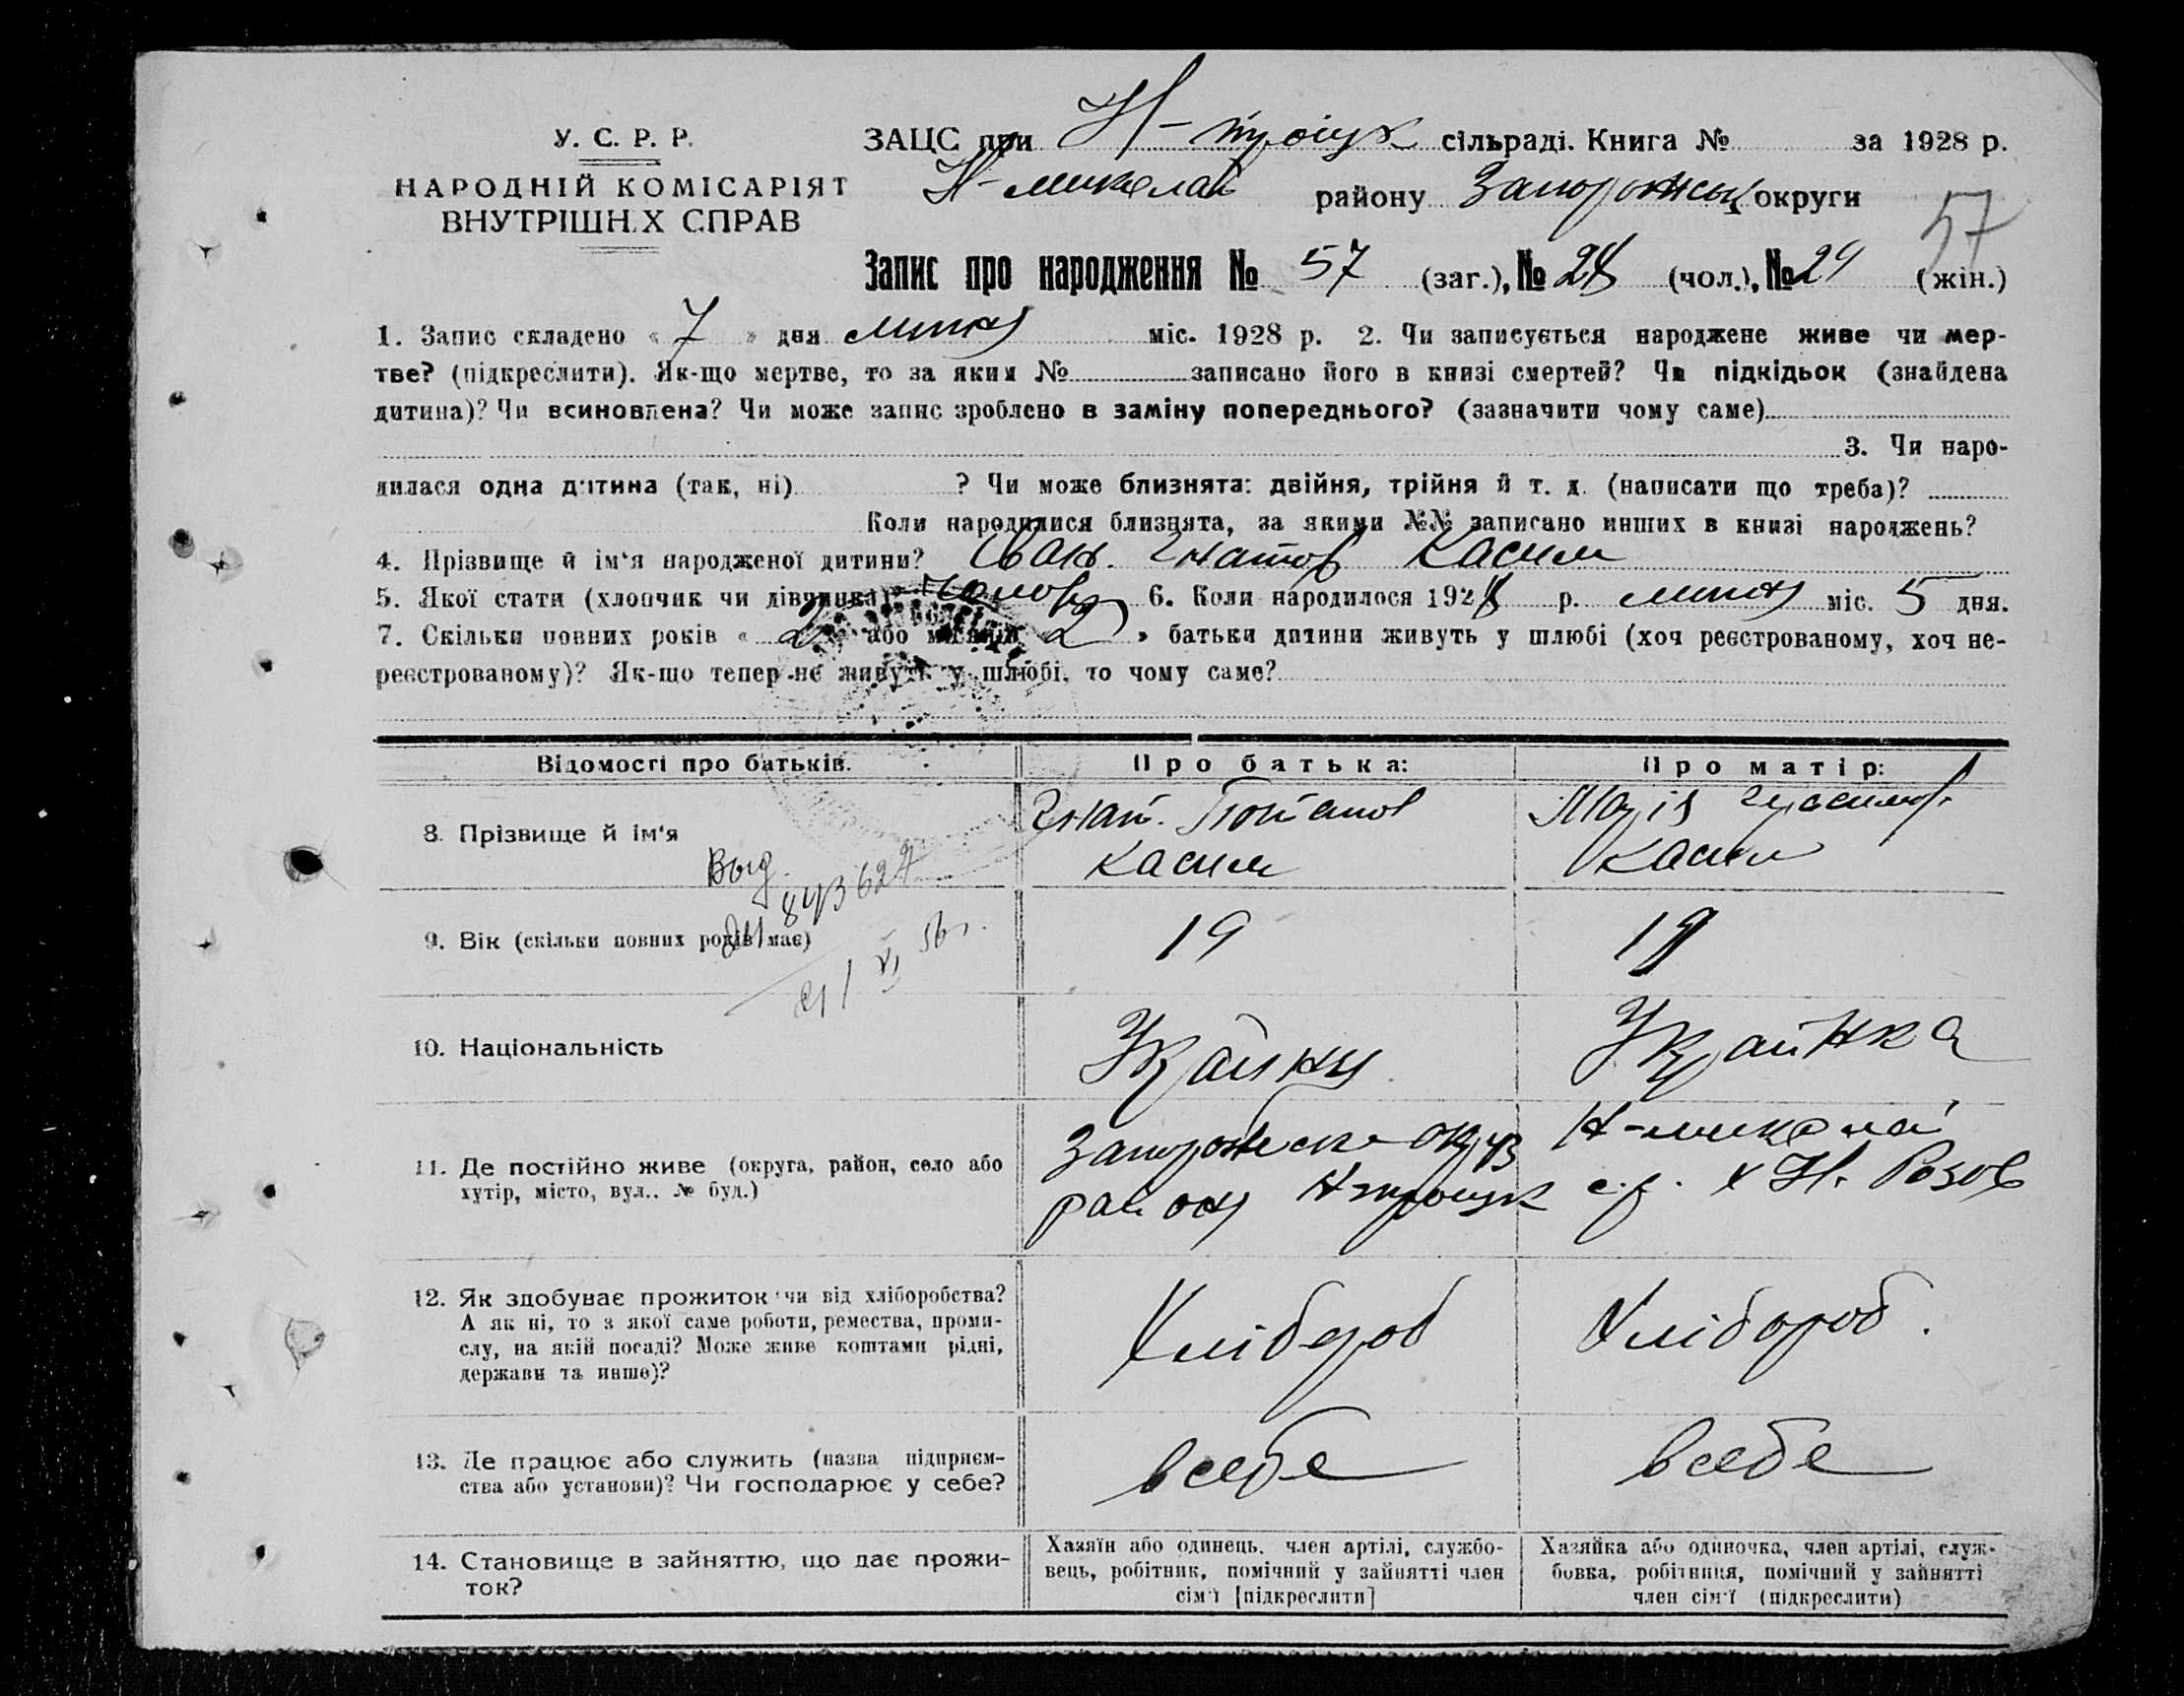 У. С. Р. Р.
НАРОДНІЙ КОМІСАРІЯТ
ВНУТРІШН.Х СПРАВ
ЗАЦС при Н-троіцк сільраді. Книга № за 1928 р.
Н-миколай району Запоріжськ округи
57
Запис про народження № 57 (заг.), № 28 (чол.), № 29 (жін.)
1. Запис складено « 7 » дня липня міс. 1928 р. 2. Чи записується народжене живе чи мер-
тве? (підкреслити). Як-що мертве, то за яким № записано його в книзі смертей? Чи підкідьок (знайдена
дитина)? Чи всиновлена? Чи може запис зроблено в заміну попереднього? (зазначити чому саме)
3. Чи наро-
дилася одна дитина (так, ні) ? Чи може близнята: двійня, трійня й т. д. (написати що треба)?
Коли народилися близнята, за якими №№ записано инших в книзі народжень?
4. Прізвище й ім'я народженої дитини? Іван. Гнатов Касим
5. Якої стати (хлопчик чи дівчинка)? 6. Коли народилося 1928 р. липня міс. 5 дня.
7. Скільки повних років « 2 » або місяців « 2 » батьки дитини живуть у шлюбі (хоч реєстрованому, хоч не-
реєстрованому)? Як-що тепер не живуть у шлюбі, то чому саме?
Відомості про батьків. Про батька: Про матір:
8. Прізвище й ім'я Гнат. Потапов Марія Герасимов.
Касим Касим
Выд. 843627
9. Вік (скільки повних років має) 19 19
VI 56 г.
10. Національність Украінец Украінка
11. Де постійно живе (округа, район, село або Запоріжска округ Н-миколай
хутір, місто, вул.. № буд.) району Н-троіцк с.р. х Н. Розов
12. Як здобуває прожиток чи від хліборобства? Хлібороб Хлібороб.
А як ні, то з якої саме роботи, ремества, проми-
слу, на якій посаді? Може живе коштами рідні,
держави та инше)?
13. Де працює або служить (назва підприєм- всебе всебе
ства або установи)? Чи господарює у себе?
14. Становище в зайняттю, що дає прожи-
ток?
Хазяїн або одинець, член артілі, службо-
вець, робітник, помічний у зайнятті член
сім'ї [підкреслити]
Хазяйка або одиночка, член артілі, служ-
бовка, робітниця, помічний у зайнятті
член сім'ї (підкреслити)